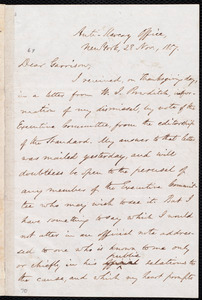 Anti-Slavery Office,
New York, 23 Nov., 1857.
Dear Garrison,
I received, on Thanksgiving day,
in a letter from W. I. Bowditch, infor-
mation of my dismissal, by vote of the
Executive Committee, from the editorship
of the Standard. My answer to that letter
was mailed yesterday, and will
doubtless be open to the perusal of
any member of the Executive Commit-
tee who may wish to see it. But I
have something to say which I would
not utter in an official note address-
ed to one who is known to me only
or chiefly in his public relations to
the cause, and which my heart prompts